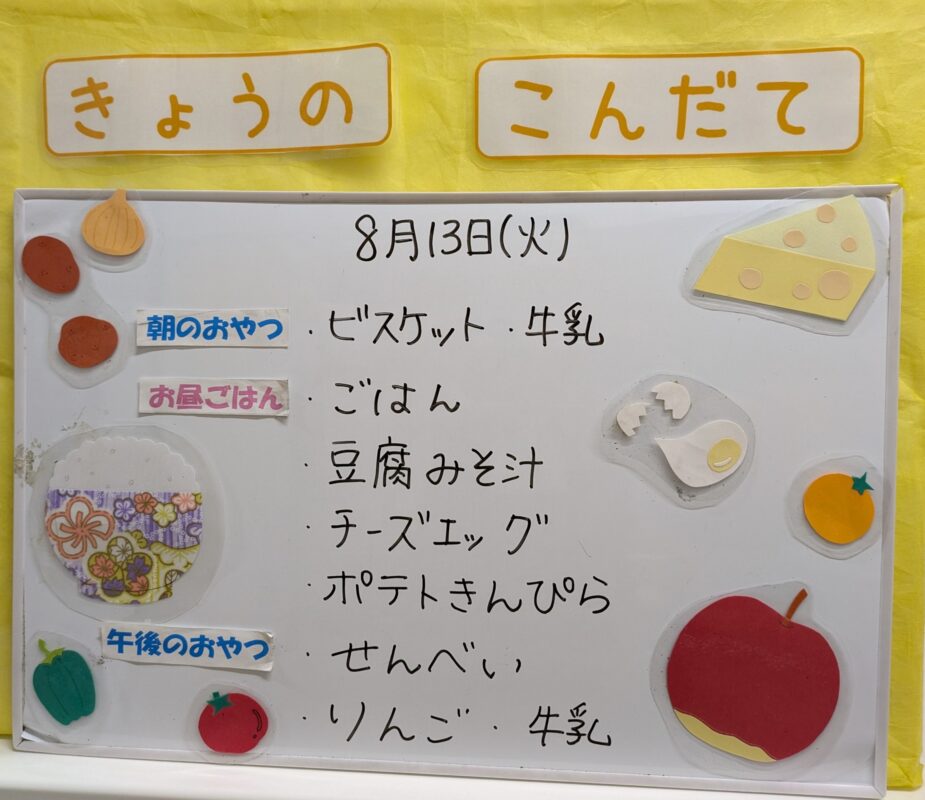 きょうの こんだて
8月13日(火)
朝のおやつ ・ビスケット・牛乳
お昼ごはん ・ごはん
・豆腐みそ汁
・チーズエッグ
・ポテトきんぴら
午後のおやつ ・せんべい
・りんご・牛乳